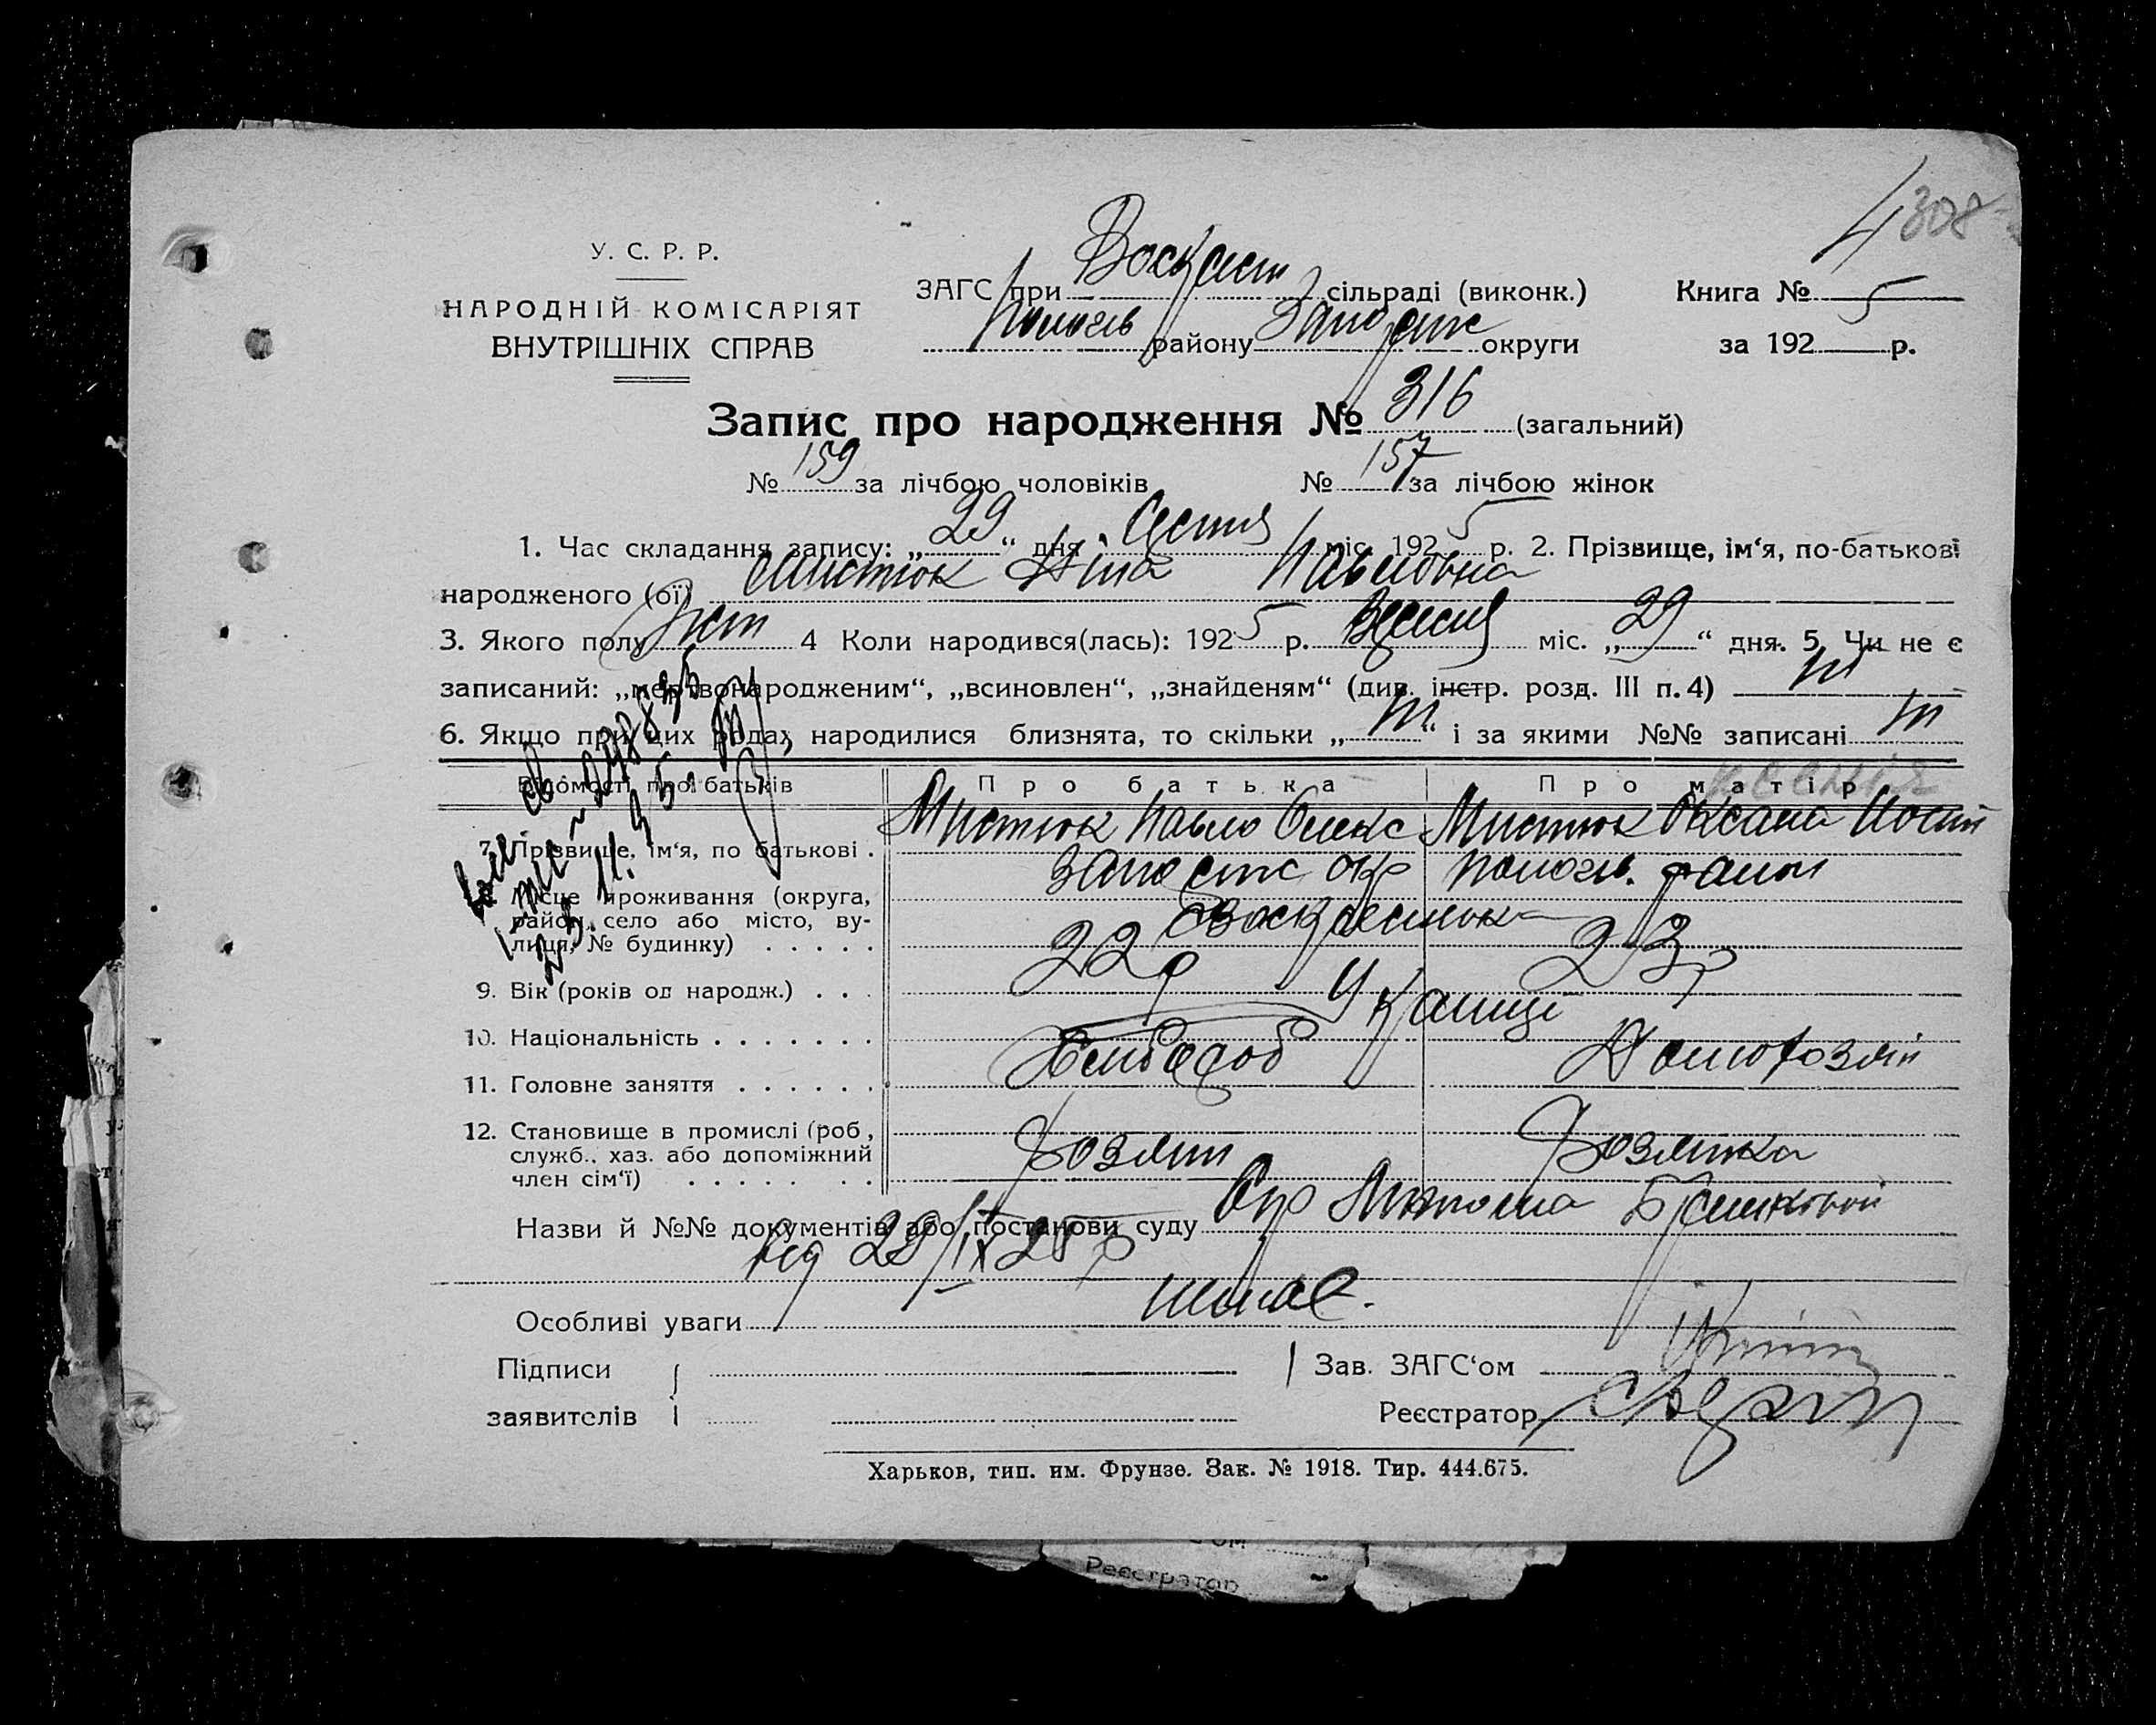 4 308
У. С. Р. Р.
НАРОДНІЙ КОМІСАРІЯТ
ВНУТРІШНІХ СПРАВ
ЗАГС при Воскресен сільраді (виконк.)
Пологів району Запоріж округи
Книга № 5
за 192 р.
Запис про народження № 316 (загальний)
№ 159 за лічбою чоловіків № 157 за лічбою жінок
1. Час складання запису: „29“ дня міс. 1925 р. 2. Прізвище, ім‘я, по-батькові
народженого (ої) Мистюк Ніна Павловна
3. Якого полу жін 4 Коли народився(лась): 1925 р. Вересня міс. „29“ дня. 5. Чи не є
записаний: „мертвонародженим“, „всиновлен“, „знайденям“ (див. інстр. розд. III п. 4) ні
6. Якщо при цих родах народилися близнята, то скільки „ні“ і за якими №№ записані ні
Відомості про батьків Про батька Про матір
7. Прізвище, ім‘я, по батькові . Мистюк Павло Олекс Мистюк Оксана Йосип
Місце проживання (округа, район, село або місто, вулиця, № будинку) . . . . . Запоріж окр Пологів. район
Воскресенька
9. Вік (років од народж.) . . . 22 р 23 р
10. Національність . . . . . . . Українці
11. Головне заняття . . . . . . Хлібороб Домохозяй
12. Становище в промислі (роб., служб., хаз. або допоміжний член сім‘ї) . . . . . . . Хозяин Хозяйка
Назви й №№ документів або постанови суду
від 29/IX 25 р
Особливі уваги немає.
Підписи
заявителів
Зав. ЗАГС‘ом
Реєстратор
Харьков, тип. им. Фрунзе. Зак. № 1918. Тир. 444.675.
Реєстратор